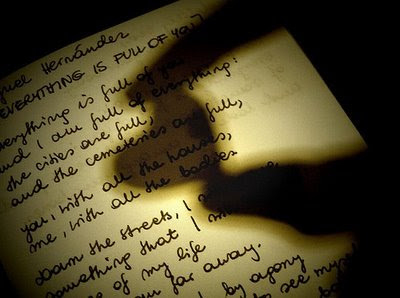 guel Hernández
(EVERYTHING IS FULL OF YOU)
verything is full of you
and I am full of everything:
the cities are full,
and the cemeteries are full,
you, with all the houses,
me, with all the bodies
Down the streets, I
something that I
of my life
far away.
by agony
see myself